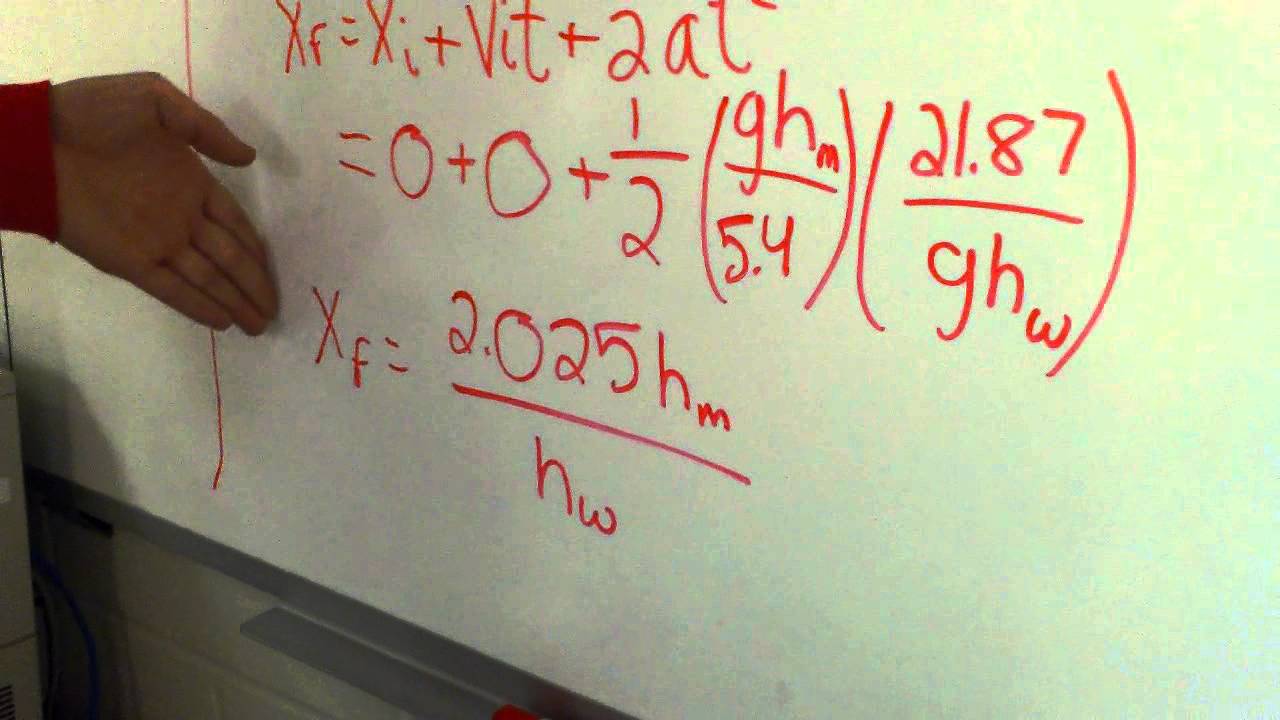 Xf = Xi + Vit + 2at²
= 0 + 0 + 1/2 (ghm/5.4) (21.87/ghw)
Xf = 2.025hm/hw